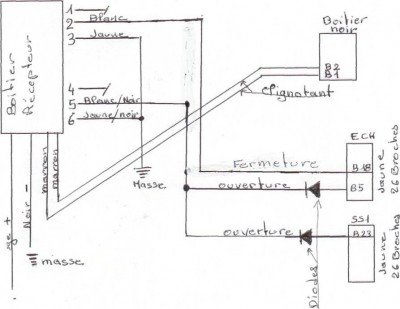 Boitier
Récepteur
1
2 Blanc
3 Jaune
4
5 Blanc/Noir
6 Jaune/noir
Boitier
noir
B2
B1
clignotant
marron
marron
Noir -
+
masse
Masse
ECH
Fermeture
B18
ouverture
B5
Jaune
26 Broches
SS1
ouverture
B23
Jaune
26 Broches
Diodes